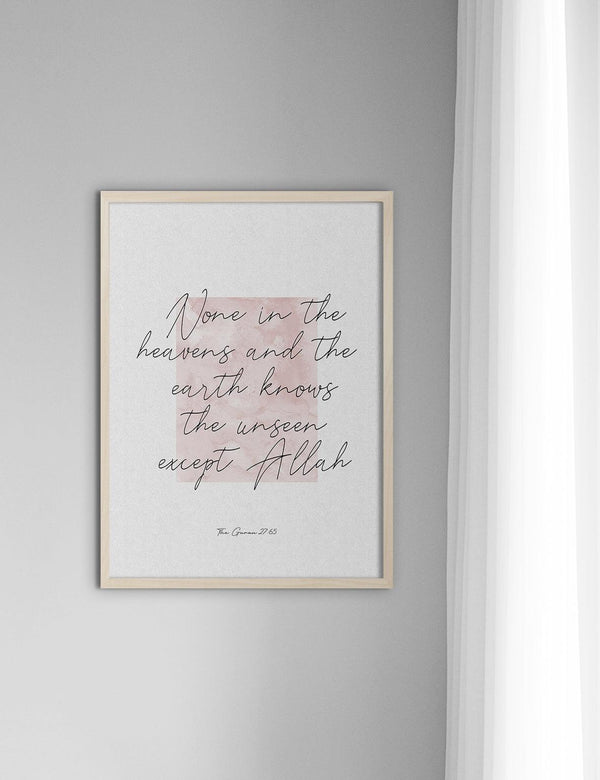 None in the
heavens and the
earth knows
the unseen
except Allah
The Quran 27:65